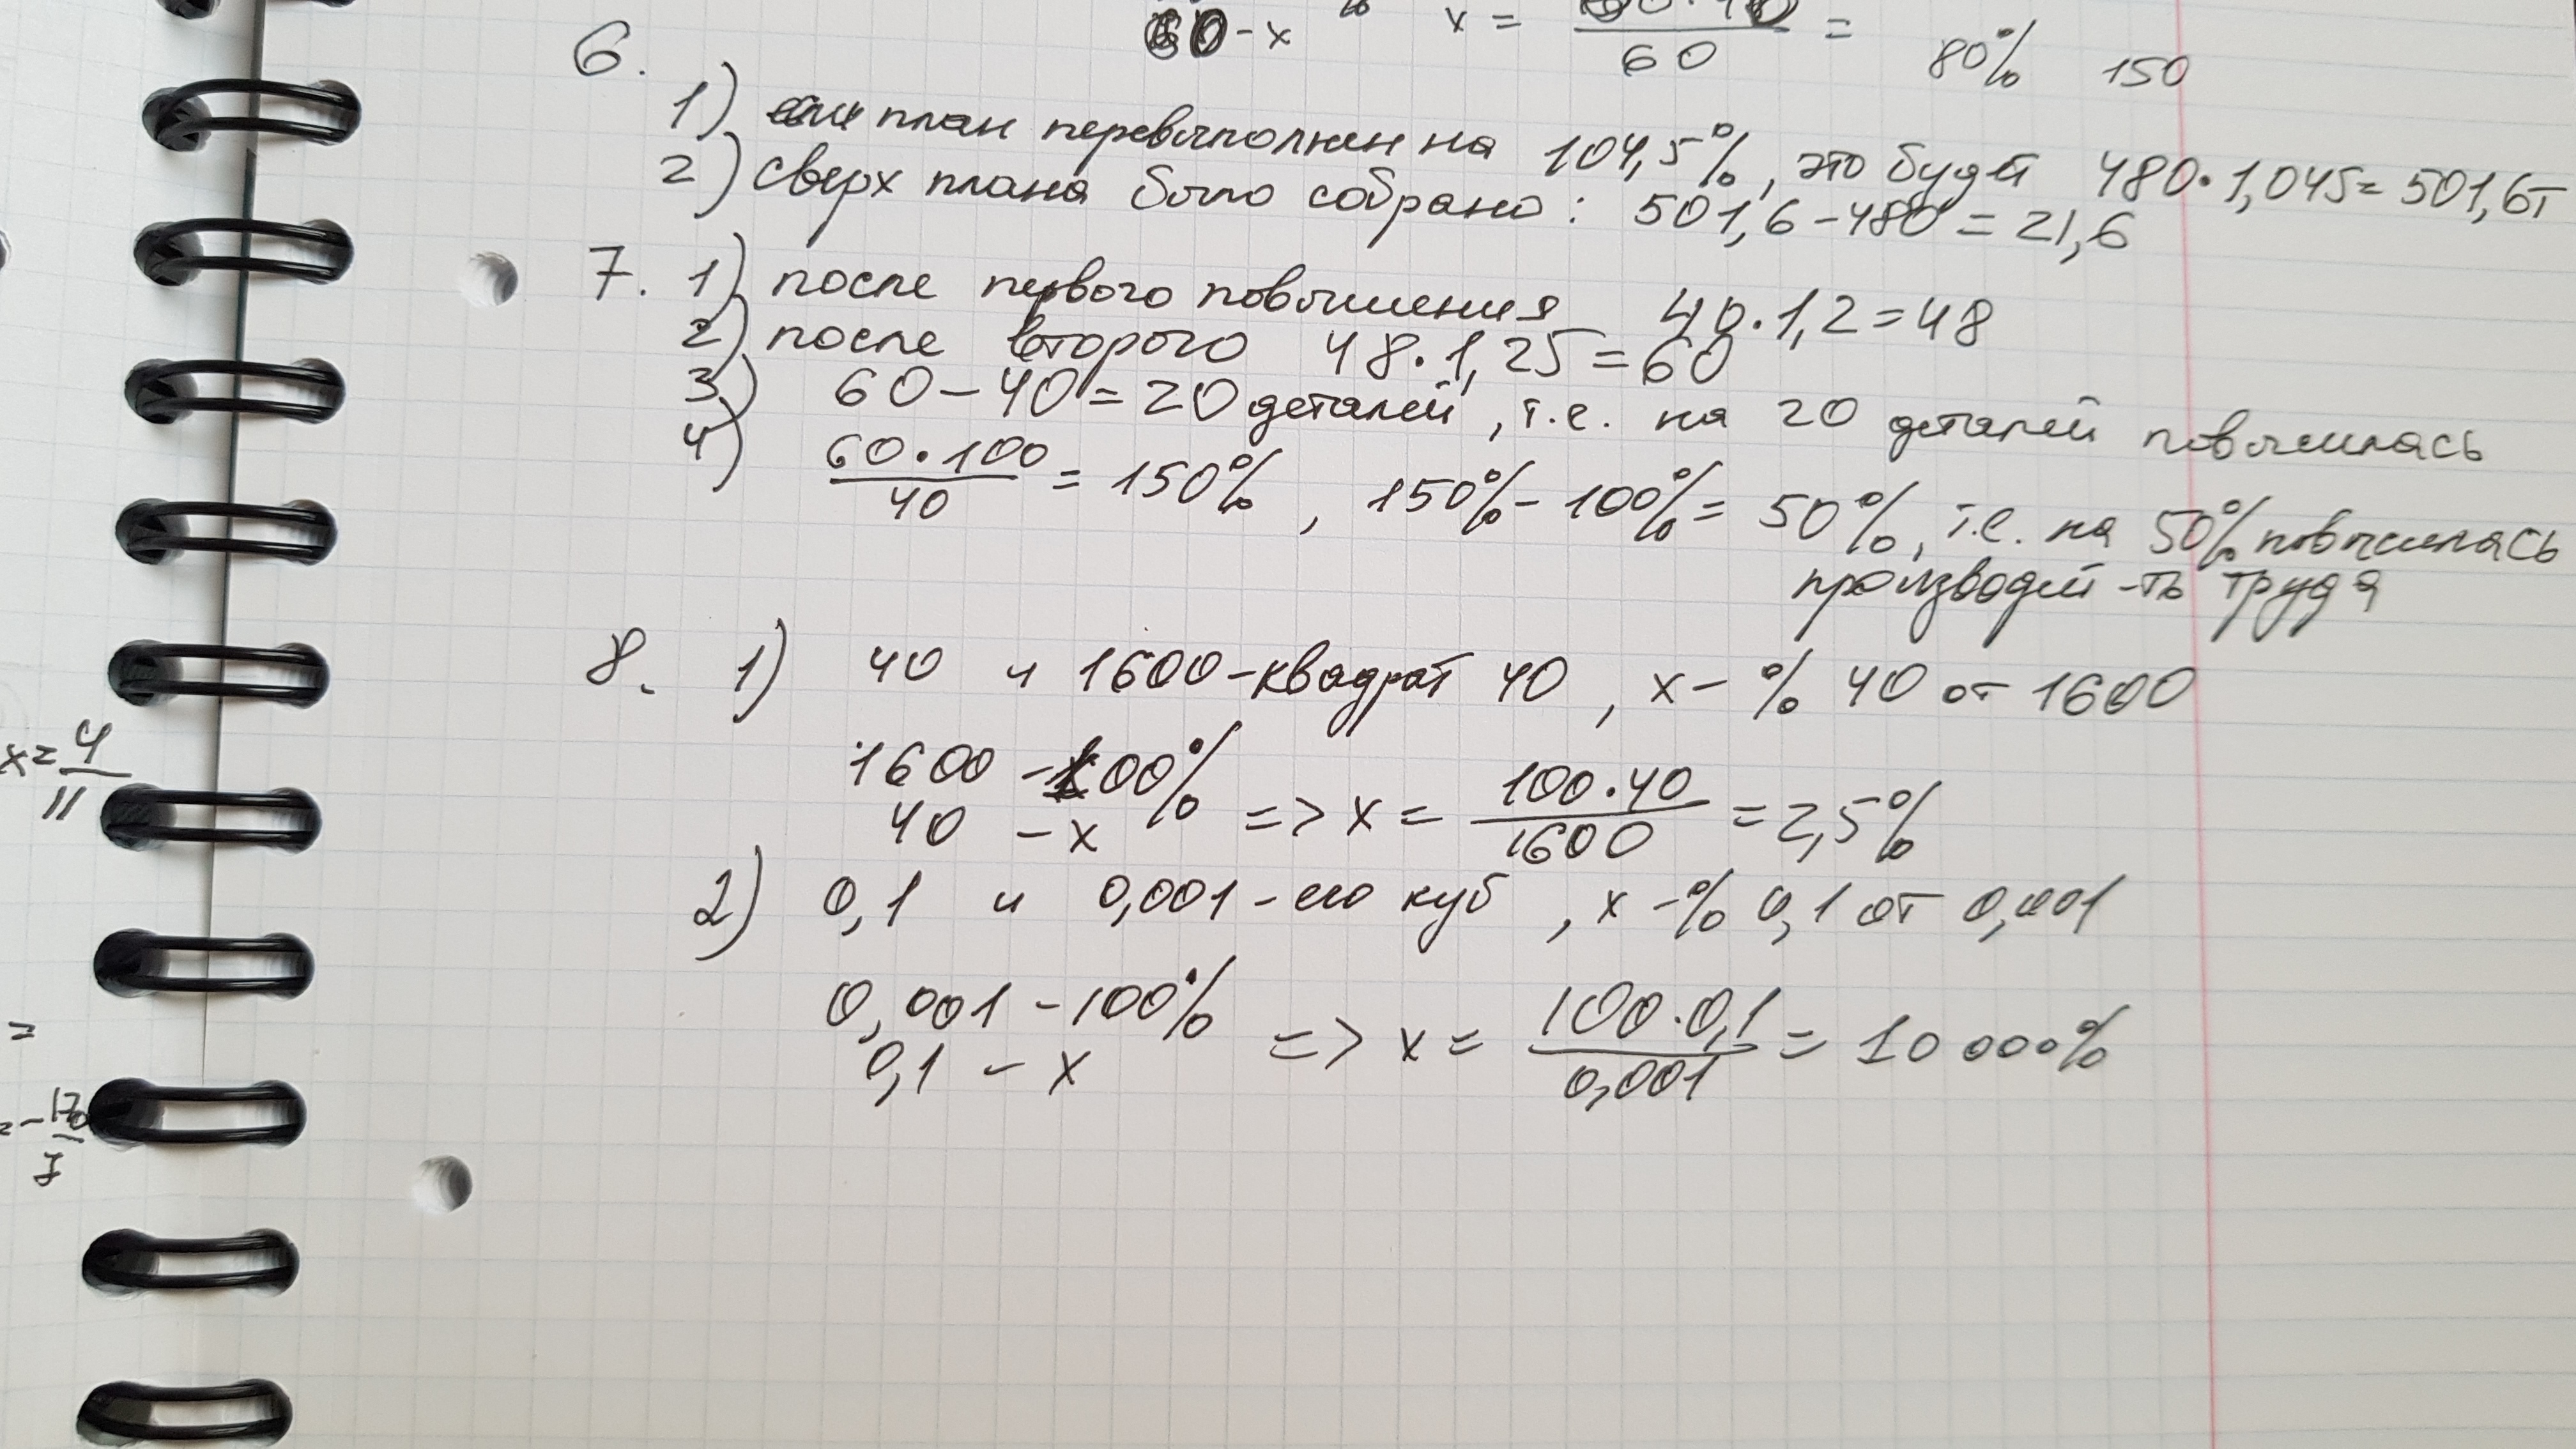 60 - x   x = 60 =
80%   150
6.
1) план перевыполнен на 104,5%, это будет 480·1,045=501,6т
2) сверх плана было собрано: 501,6-480=21,6
7. 1) после первого повышения 40·1,2=48
2) после второго 48·1,25=60
3) 60-40=20 деталей, т.е. на 20 деталей повысилась
4) 60·100/40 = 150%, 150%-100%=50%, т.е. на 50% повысилась
производит-ть труда
8. 1) 40 и 1600-квадрат 40, x-% 40 от 1600
1600 - 100%
40 - x => x = 100·40/1600 = 2,5%
2) 0,1 и 0,001-его куб, x-% 0,1 от 0,001
0,001-100%
0,1 - x => x = 100·0,1/0,001 = 10 000%
x = 4/11
=